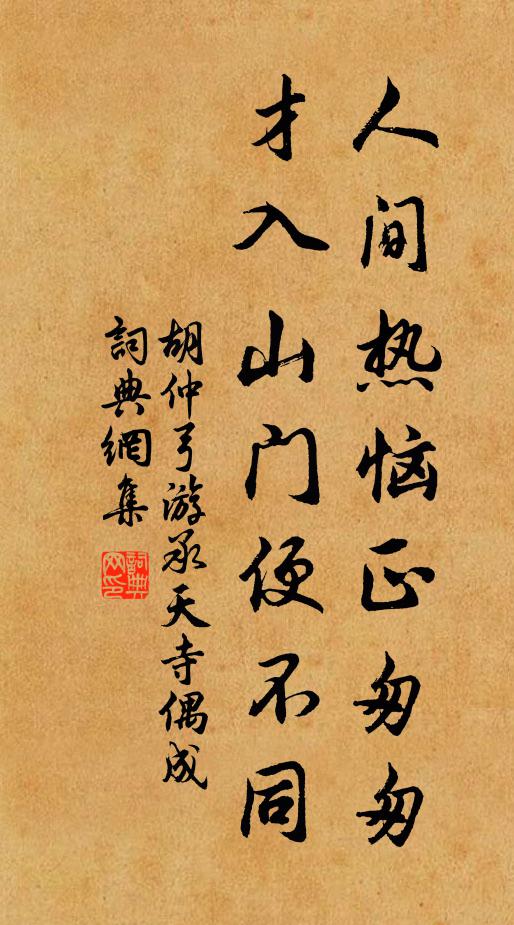 人间热恼正匆匆
才入山门便不同
胡仲弓游承天寺偶成
詞典網集
詞典网印